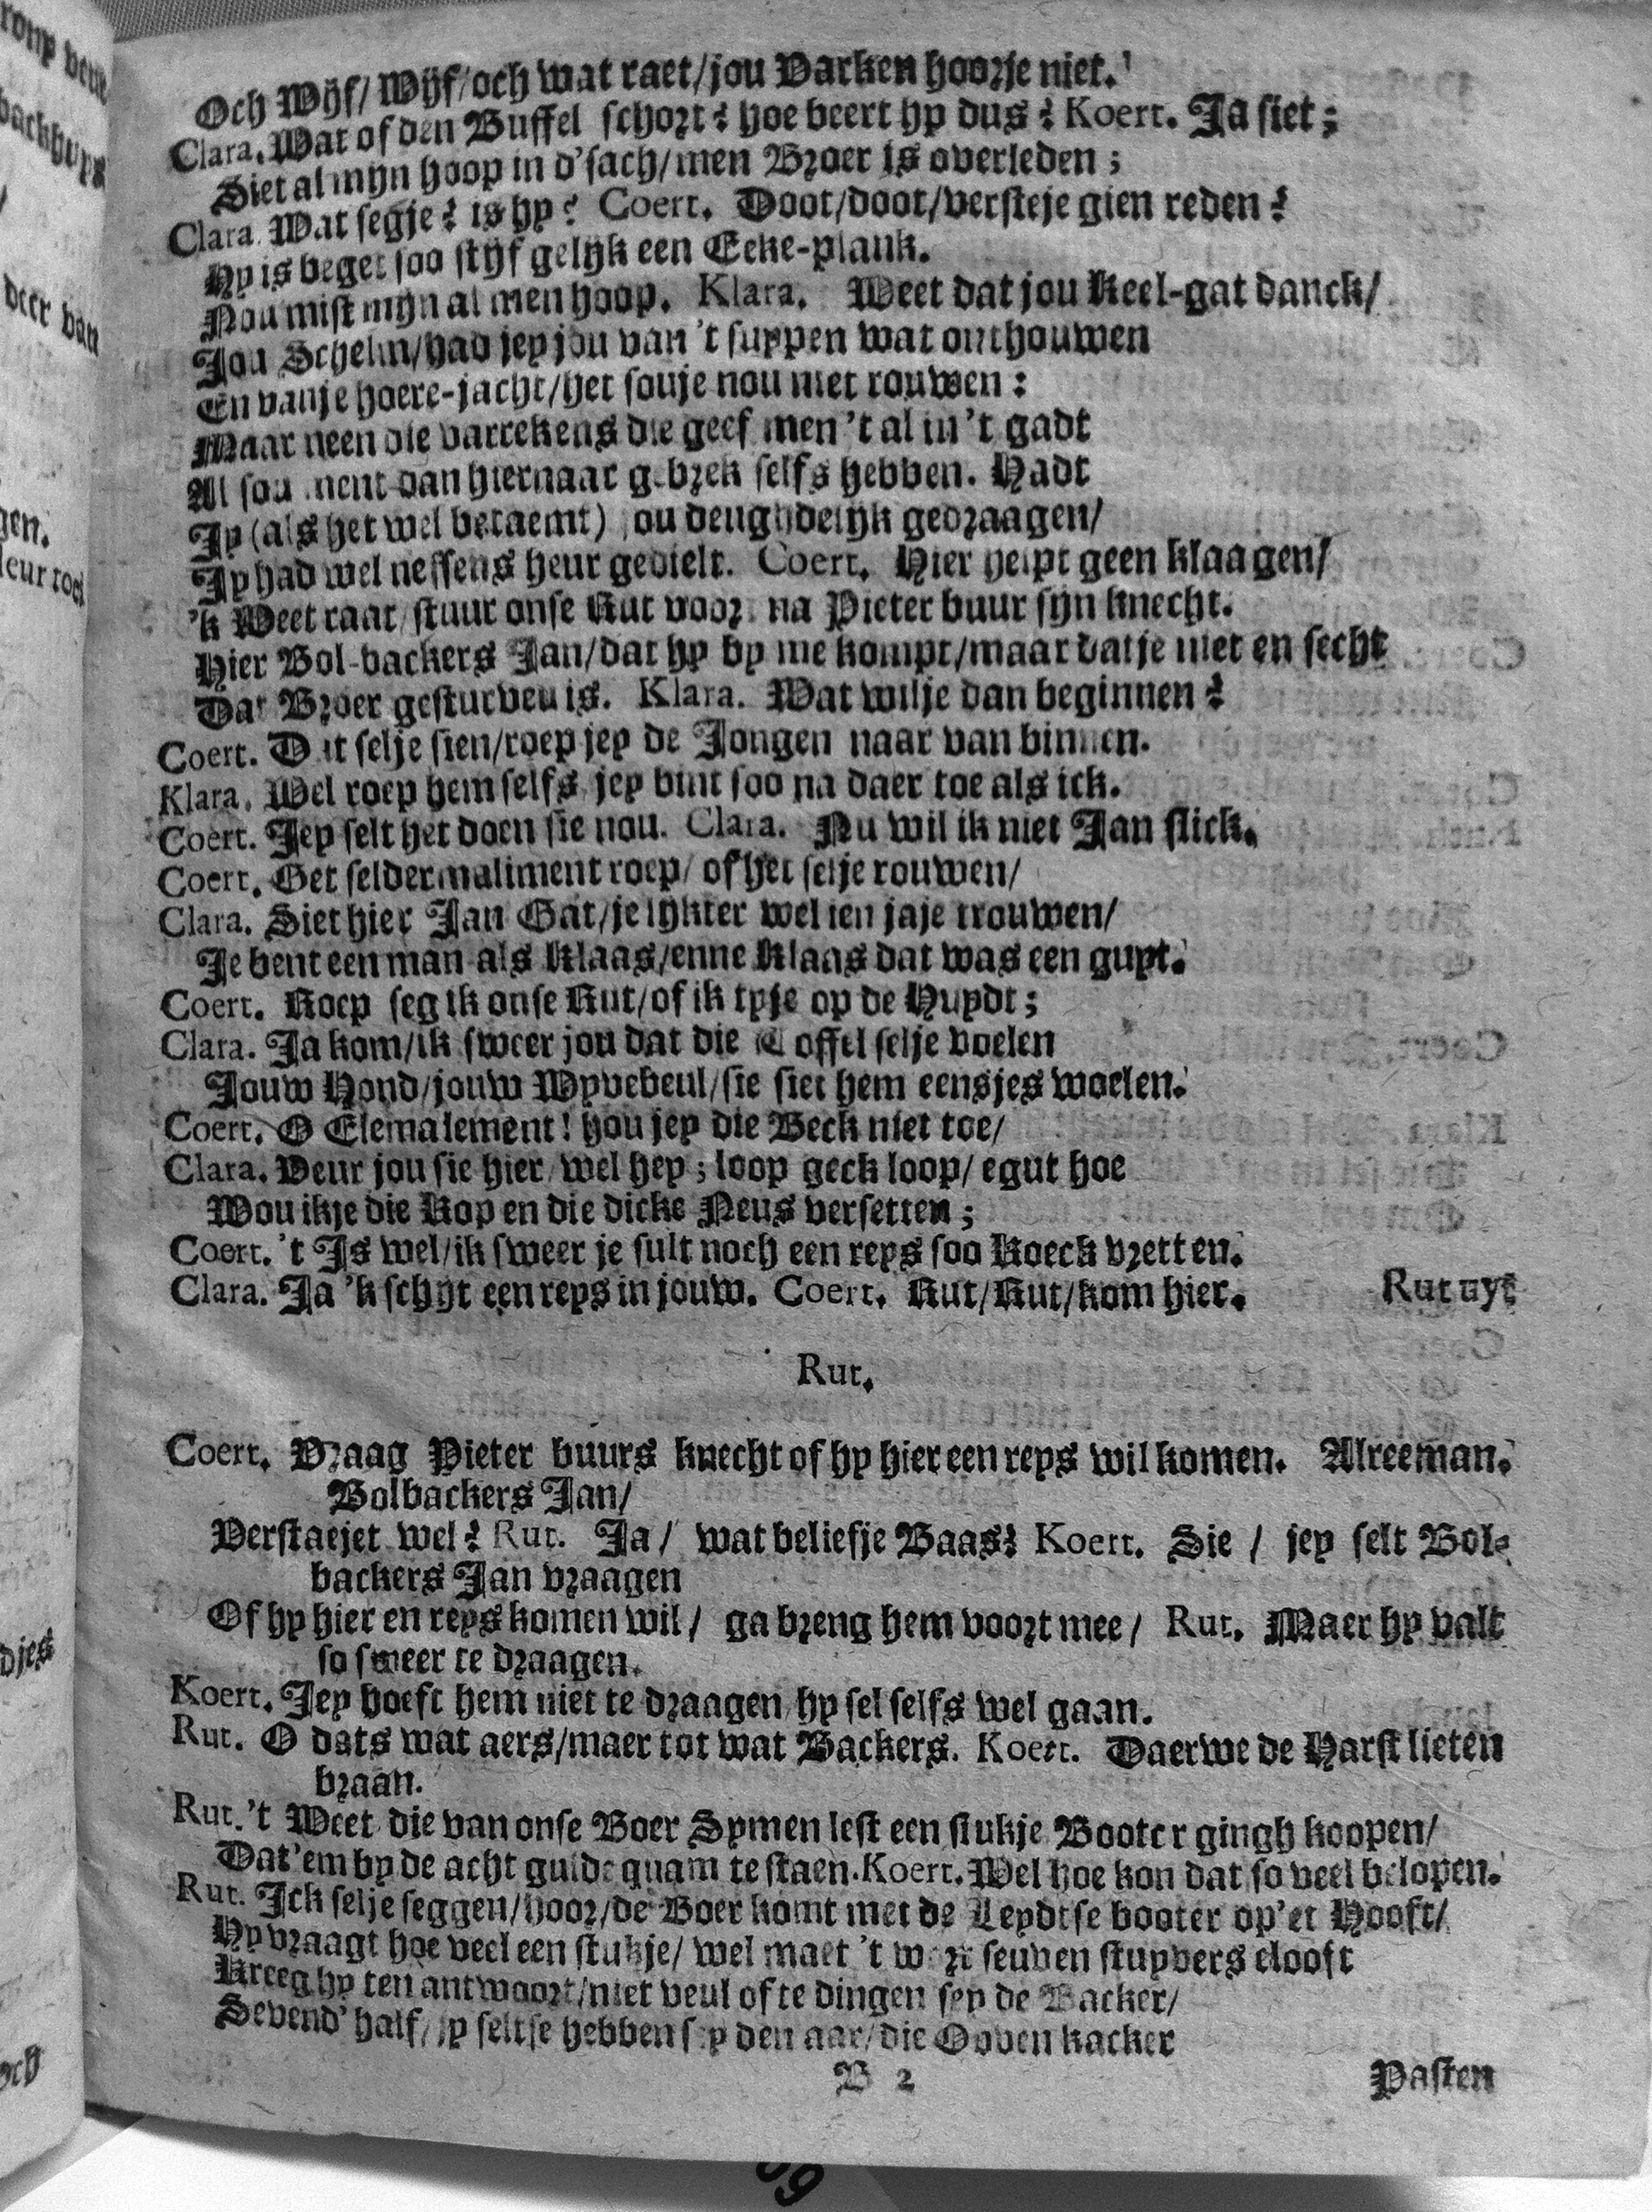 Och Wijf/ Wijf/och wat raet/jou Varken hoorje niet.
Clara. Wat of den Buffel schort? hoe beert hy dus? Koert. Ja siet;
Siet al mijn hoop in d'sach/men Broer is overleden;
Clara. Wat segje? is hy? Coert. Doot/doot/versteje gien reden?
Hy is beget soo stijf gelijk een Eeke-plank.
Nou mist mijn al men hoop. Klara. Weet dat jou Keel-gat danck/
Jou Schelm/had jey jou van 't suypen wat onthouwen
En vanje hoere-jacht/het souje nou niet rouwen:
Maar neen die varrekens die geef men 't al in 't gadt
Al sou ment dan hiernaar gebrek selfs hebben. Hadt
Jy (als het wel betaemt) jou deughdelijk gedraagen/
Jy had wel neffens heur gedielt. Coert. Hier helpt geen klaagen/
'k Weet raat/stuur onse Rut voor na Pieter buur sijn knecht.
Hier Bol-backers Jan/dat hy by me kompt/maar datje niet en secht
Dat Broer gesturven is. Klara. Wat wilje dan beginnen?
Coert. Dat selje sien/roep jey de Jongen naar van binnen.
Klara. Wel roep hem selfs, jey bint soo na daer toe als ick.
Coert. Jey selt het doen sie nou. Clara. Nu wil ik niet Jan slick.
Coert. Get seldermaliment roep/ of het selje rouwen/
Clara. Siet hier Jan Gat/je lijkter wel ien jaje trouwen/
Je bent een man als Klaas/enne Klaas dat was een guyt.
Coert. Roep seg ik onse Rut/of ik tyje op de Huydt;
Clara. Ja kom/ik sweer jou dat die Toffel selje voelen
Jouw Hond/jouw Wyvebeul/sie siet hem eensjes woelen.
Coert. O Elemalement! hou jey die Beck niet toe/
Clara. Veur jou sie hier wel hey; loop geck loop/ egut hoe
Wou ikje die Kop en die dicke Neus versetten;
Coert. 't Is wel/ik sweer je sult noch een reys soo Koeck vretten.
Clara. Ja 'k schijt een reys in jouw. Coert. Rut/Rut/kom hier. Rut uyt
Rut.
Coert. Vraag Pieter buurs knecht of hy hier een reys wil komen. Alreeman.
Bolbackers Jan/
Verstaejet wel? Rut. Ja/ wat beliefje Baas? Koert. Sie / jey selt Bol-
backers Jan vraagen
Of hy hier en reys komen wil/ ga breng hem voort mee/ Rut. Maer hy valt
so sweer te draagen.
Koert. Jey hoeft hem niet te draagen hy sel selfs wel gaan.
Rut. O dats wat aers/maer tot wat Backers. Koert. Daerwe de Harst lieten
braan.
Rut. 't Weet die van onse Boer Symen lest een stukje Booter gingh koopen/
Dat'em by de acht gulde quam te staen. Koert. Wel hoe kon dat so veel belopen.
Rut. Ick selje seggen/hoor/de Boer komt met de Leydtse booter op'et Hooft/
Hy vraagt hoe veel een stukje/ wel maet 't wort seuven stuyvers elooft
Kreeg hy ten antwoort/niet veul of te dingen sey de Backer/
Sevend' half/jy seltse hebben sey den aar/die Ooven kacker
B 2 Pasten